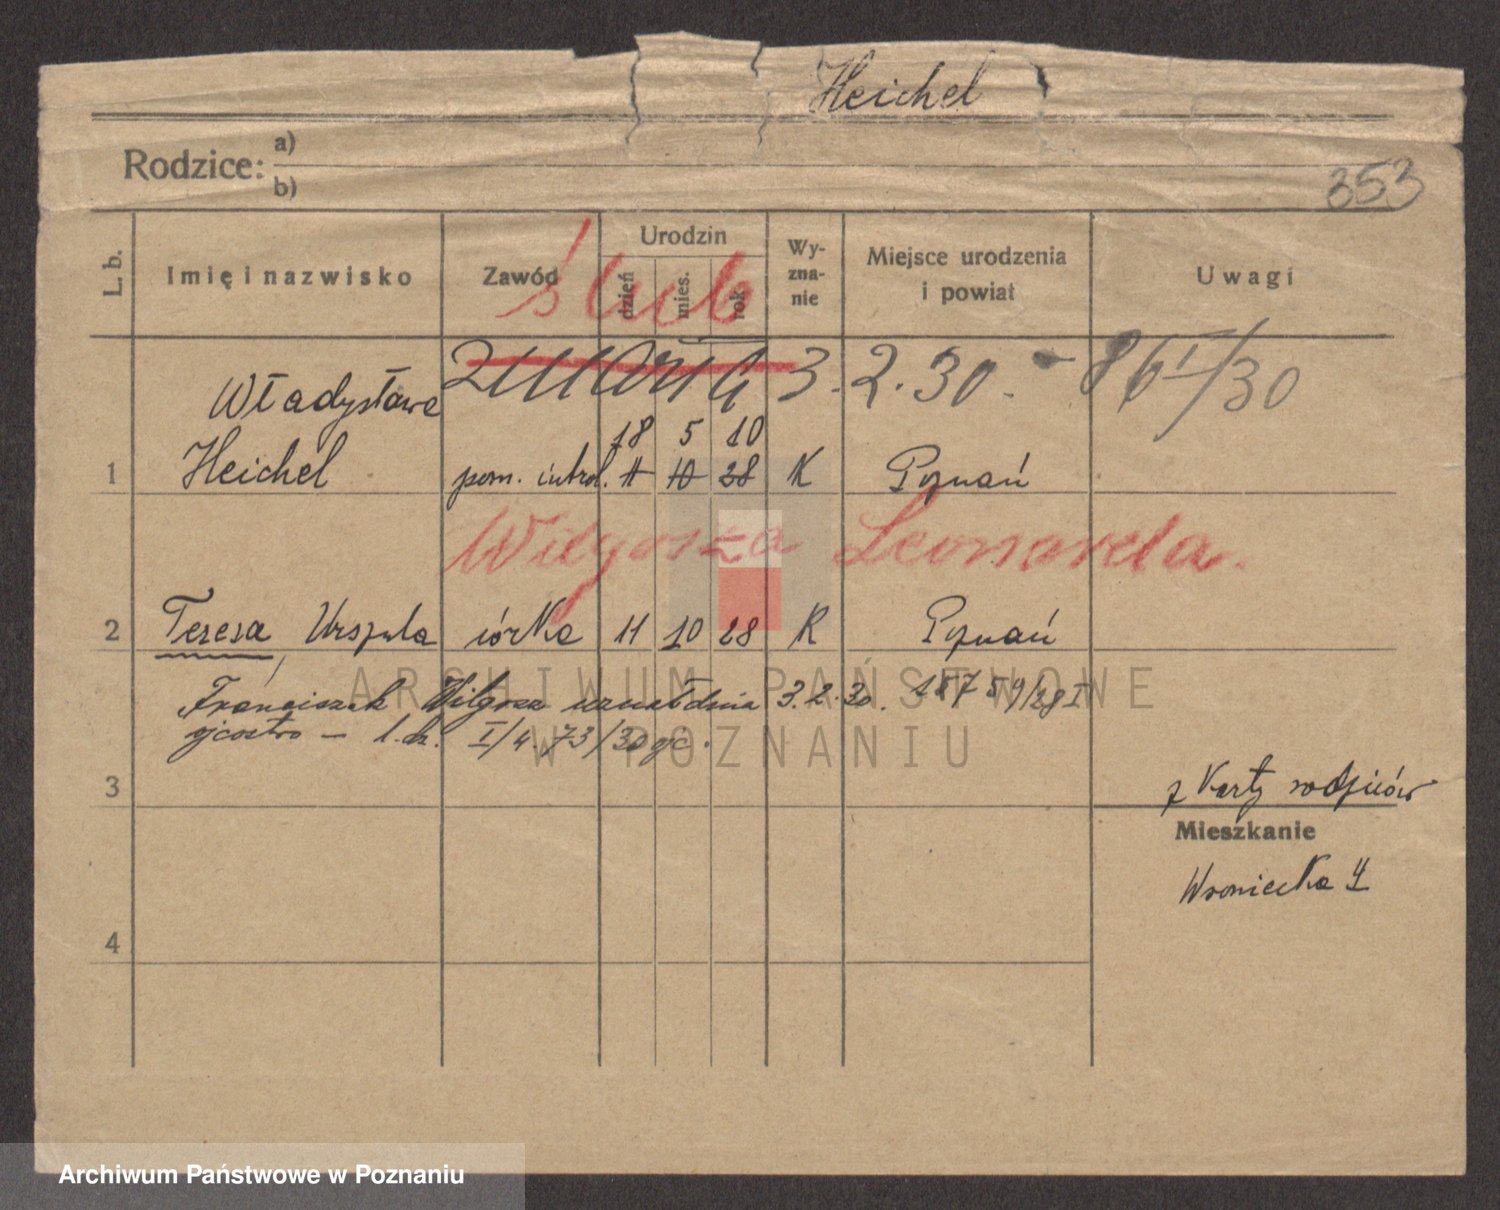 Heichel
Rodzice: a)
b)
353
L. b.
Imię i nazwisko
Zawód
Urodzin
dzień
mies.
rok
Wy-
zna-
nie
Miejsce urodzenia
i powiat
Uwagi
ślub
3.2.30. - 86 I/30
Władysława
18 5 10
1 Heichel pom. introl. 11 10 28 K Poznań
Wilgosza Leonarda.
2 Teresa Urszula córka 11 10 28 K Poznań
Franciszek Wilgosz uznał dnia 3.2.30. 1875 9/28 I
ojcostwo - l. dz. I/4. 73/30
3
z Karty rodziców
Mieszkanie
Wroniecka 4
4
ARCHIWUM PAŃSTWOWE
W POZNANIU
Archiwum Państwowe w Poznaniu